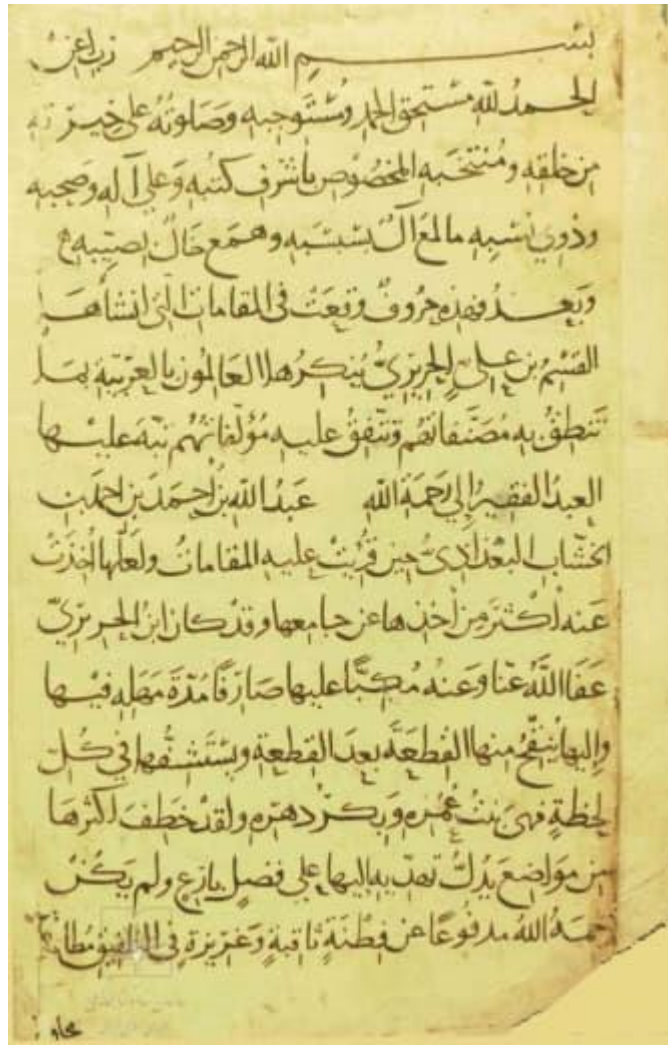 بسم الله الرحمن الرحيم رب اعن
الحمد لله مستحق الحمد ومستوجبه وصلوته على خيرته
من خلقه ومنتخبه المخصوص باشرف كتبه وعلي آله وصحبه
وذوي نسبه ما لمع آل بسبسبه وهمع خال بصيبه
وبعد فهذه حروف وقعت في المقامات التي انشاها
القسم بن علي الحريري ينكرها العالمون بالعربية بما
تنطق به مصنفاتهم وتتفق عليه مؤلفاتهم نبه عليها
العبد الفقير إلي رحمة الله عبد الله بن احمد بن احمد بن
الخشاب البغدادي حين قريت عليه المقامات ولعلها أخذت
عنه أكثر من أخذها عن جامعها وقد كان ابن الحريري
عفا الله عنا وعنه مكبا عليها صارفا مدة مهله فيها
وإليها ينقح منها القطعة بعد القطعة ويستشفها في كل
لحظة فهي بنت عمره وبكر دهره ولقد خطف أكثرها
من مواضع يدل تهديه إليها علي فضل بارع ولم يكن
رحمه الله مدفوعا عن فطنة ثاقبة وغريزة في التلفيق